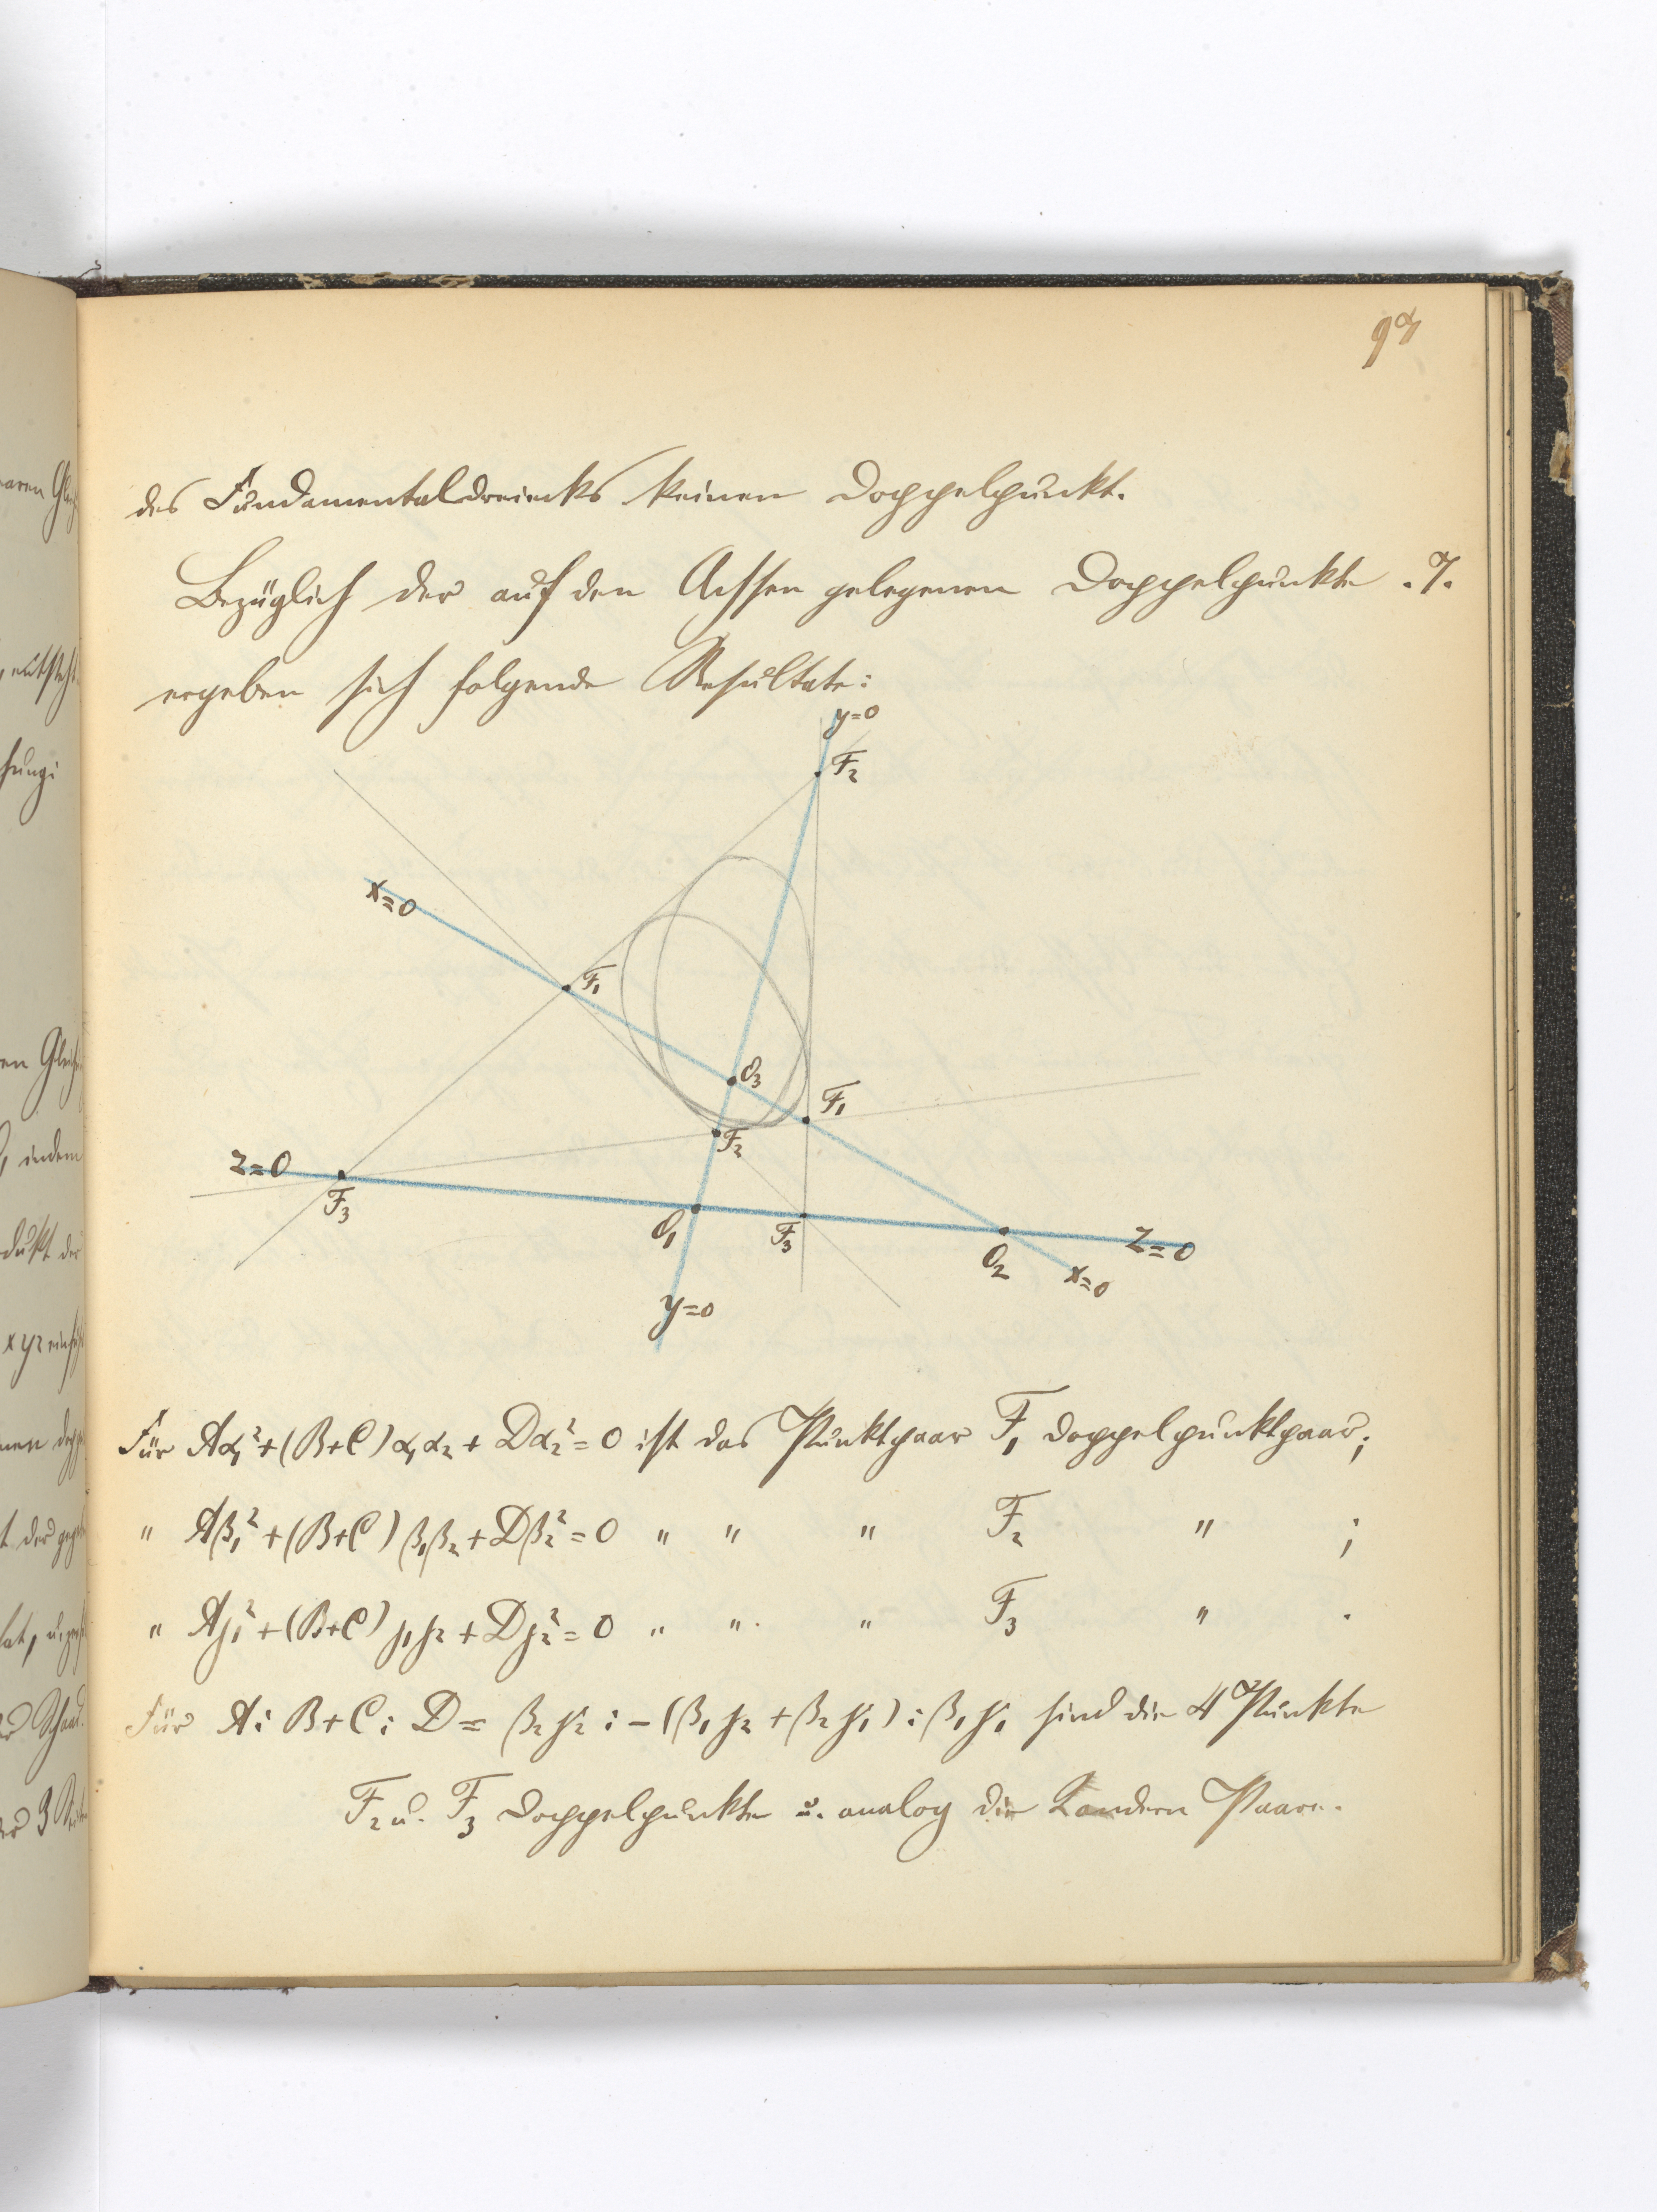 9α
des Fundamentaldreiecks keinen Doppelpunkt.
Bezüglich der auf den Achsen gelegenen Doppelpunkte
ergeben sich folgende Resultate:
y=0
F₂
x=0
F₁
O₃
F₁
F₂
z=0
F₃
O₁
F₃
O₂
z=0
x=0
y=0
Für Aα₁²+(B+C)α₁α₂+Dα₂²=0 ist das Punktpaar F₁ Doppelpunktpaar;
" Aβ₁²+(B+C)β₁β₂+Dβ₂²=0 " " " F₂ " ;
" Aγ₁²+(B+C)γ₁γ₂+Dγ₂²=0 " " " F₃ " .
Für A:B+C:D=β₂γ₂:-(β₁γ₂+β₂γ₁):β₁γ₁ sind die 4 Punkte
F₂ u. F₃ Doppelpunkte u. analog die 2 andern Paare.